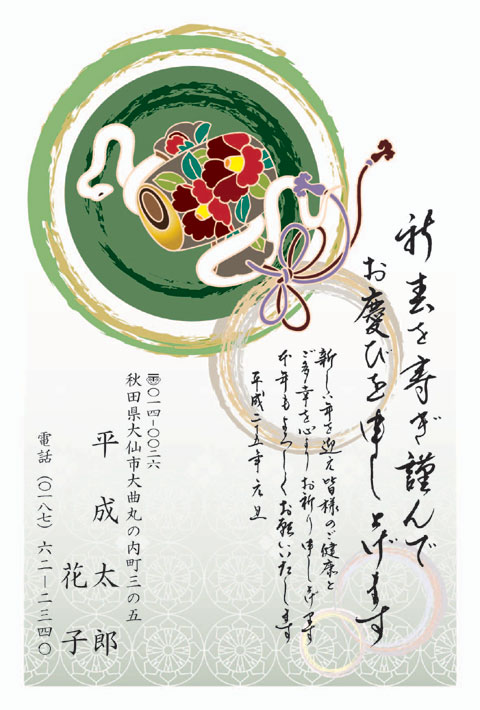 新春を寿ぎ謹んで
お慶びを申し上げます
新しい年を迎え皆様のご健康と
ご多幸を心よりお祈り申し上げます
本年もよろしくお願いいたします
平成二五年元旦
〠〇一四-〇〇二六
秋田県大仙市大曲丸の内町三の五
平成太郎
花子
電話(〇一八七)六二-二三四〇